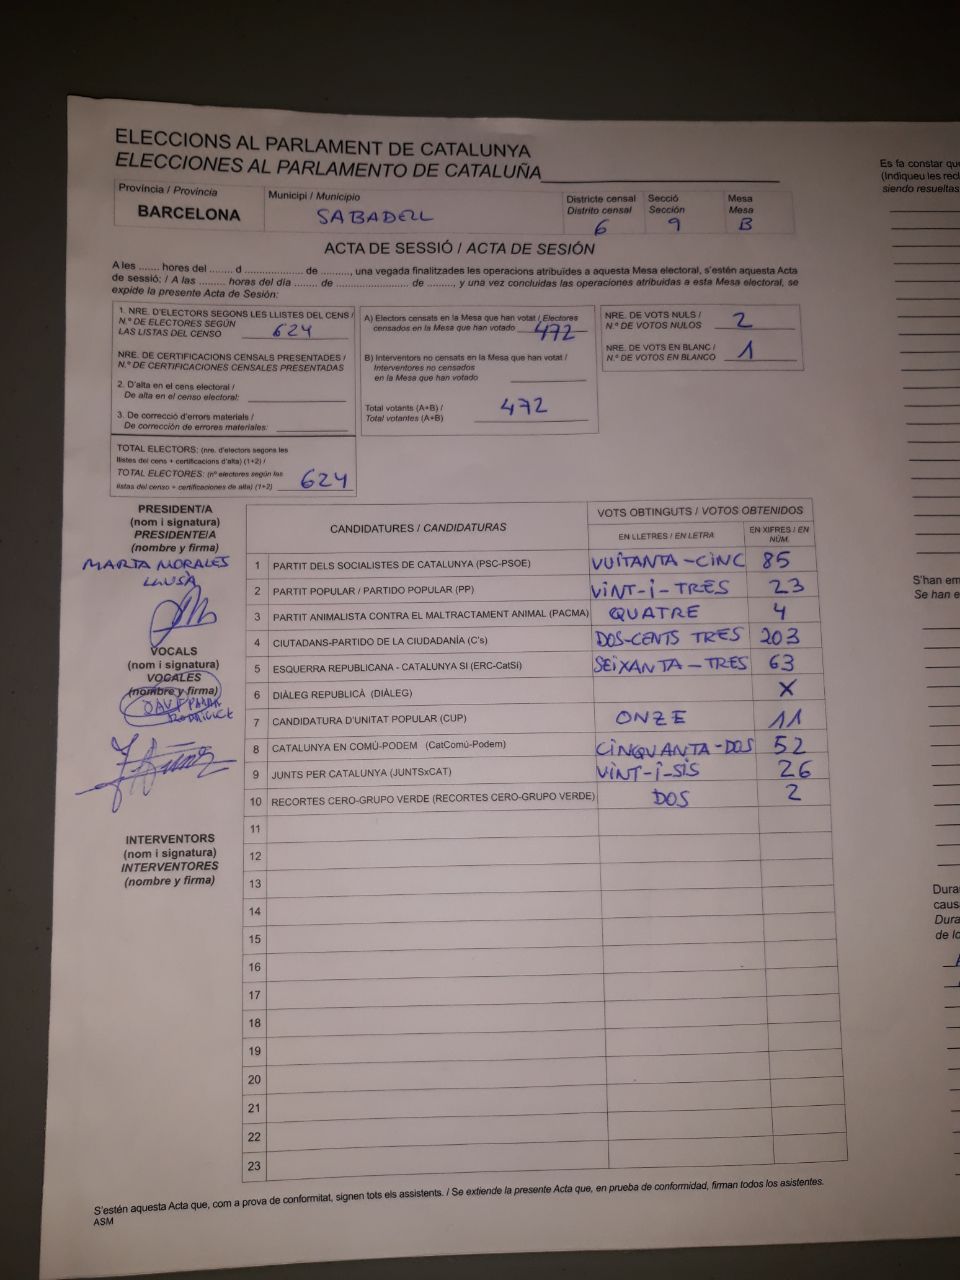 ELECCIONS AL PARLAMENT DE CATALUNYA
ELECCIONES AL PARLAMENTO DE CATALUÑA
Província / Provincia
BARCELONA
Municipi / Municipio
SABADELL
Districte censal
Distrito censal
6
Secció
Sección
9
Mesa
Mesa
B
ACTA DE SESSIÓ / ACTA DE SESIÓN
A les ....... hores del ....... d .................... de .........., una vegada finalitzades les operacions atribuïdes a aquesta Mesa electoral, s'estén aquesta Acta
de sessió: / A las ......... horas del día ....... de ......................... de ............, y una vez concluidas las operaciones atribuidas a esta Mesa electoral, se
expide la presente Acta de Sesión:
1. NRE. D'ELECTORS SEGONS LES LLISTES DEL CENS /
N.º DE ELECTORES SEGÚN
LAS LISTAS DEL CENSO 624
NRE. DE CERTIFICACIONS CENSALS PRESENTADES /
N.º DE CERTIFICACIONES CENSALES PRESENTADAS
2. D'alta en el cens electoral /
De alta en el censo electoral:
3. De correcció d'errors materials /
De corrección de errores materiales:
TOTAL ELECTORS: (nre. d'electors segons les
llistes del cens + certificacions d'alta) (1+2) /
TOTAL ELECTORES: (nº electores según las
listas del censo + certificaciones de alta) (1+2) 624
A) Electors censats en la Mesa que han votat / Electores
censados en la Mesa que han votado 472
B) Interventors no censats en la Mesa que han votat /
Interventores no censados
en la Mesa que han votado
Total votants (A+B) /
Total votantes (A+B) 472
NRE. DE VOTS NULS /
N.º DE VOTOS NULOS 2
NRE. DE VOTS EN BLANC /
N.º DE VOTOS EN BLANCO 1
PRESIDENT/A
(nom i signatura)
PRESIDENTE/A
(nombre y firma)
MARTA MORALES
VOCALS
(nom i signatura)
VOCALES
(nombre y firma)
INTERVENTORS
(nom i signatura)
INTERVENTORES
(nombre y firma)
CANDIDATURES / CANDIDATURAS
VOTS OBTINGUTS / VOTOS OBTENIDOS
EN LLETRES / EN LETRA
EN XIFRES / EN
NÚM.
1 PARTIT DELS SOCIALISTES DE CATALUNYA (PSC-PSOE) VUITANTA-CINC 85
2 PARTIT POPULAR / PARTIDO POPULAR (PP) VINT-I-TRES 23
3 PARTIT ANIMALISTA CONTRA EL MALTRACTAMENT ANIMAL (PACMA) QUATRE 4
4 CIUTADANS-PARTIDO DE LA CIUDADANÍA (C's) DOS-CENTS TRES 203
5 ESQUERRA REPUBLICANA - CATALUNYA SI (ERC-CatSí) SEIXANTA-TRES 63
6 DIÀLEG REPUBLICÀ (DIÀLEG) X
7 CANDIDATURA D'UNITAT POPULAR (CUP) ONZE 11
8 CATALUNYA EN COMÚ-PODEM (CatComú-Podem) CINQUANTA-DOS 52
9 JUNTS PER CATALUNYA (JUNTSxCAT) VINT-I-SIS 26
10 RECORTES CERO-GRUPO VERDE (RECORTES CERO-GRUPO VERDE) DOS 2
11
12
13
14
15
16
17
18
19
20
21
22
23
S'estén aquesta Acta que, com a prova de conformitat, signen tots els assistents. / Se extiende la presente Acta que, en prueba de conformidad, firman todos los asistentes.
ASM
Es fa constar que
(Indiqueu les recl
siendo resueltas
S'han em
Se han e
Dura
caus
Dura
de lo